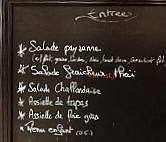 Entrées
* Salade paysanne
* Salade Fraicheur Thaï
* Salade Challandaise
* Assiette de tapas
* Assiette de foie gras
* Menu enfant